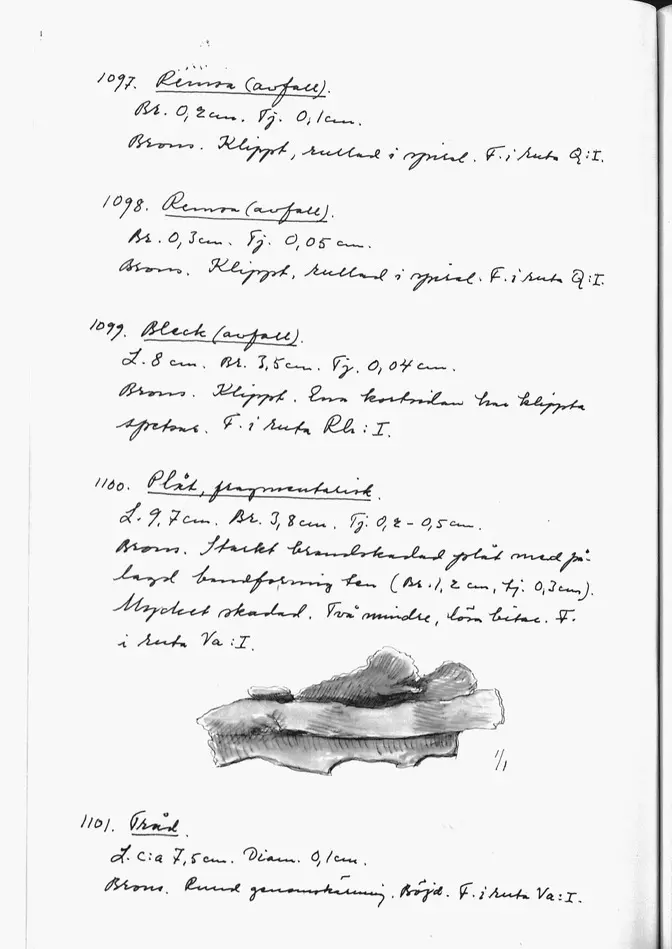 1097. Remsa (avfall).
Br. 0,2 cm. Tj. 0,1 cm.
Brons. Klippt, rullad i spiral. F. i ruta Q:I.
1098. Remsa (avfall).
Br. 0,3 cm. Tj. 0,05 cm.
Brons. Klippt, rullad i spiral. F. i ruta Q:I.
1099. Bleck (avfall).
L. 8 cm. Br. 3,5 cm. Tj. 0,04 cm.
Brons. Klippt. Ena kortsidan har klippta
spetsar. F. i ruta Rb:I.
1100. Plåt, fragmentarisk.
L. 9,7 cm. Br. 3,8 cm. Tj. 0,2 - 0,5 cm.
Brons. Starkt brandskadad plåt med på-
lagd bandformig ten (Br. 1,2 cm, tj. 0,3 cm).
Mycket skadad. Två mindre, lösa bitar. F.
i ruta Va:I.
1/1
1101. Tråd.
L. c:a 7,5 cm. Diam. 0,1 cm.
Brons. Rund genomskärning. Böjd. F. i ruta Va:I.